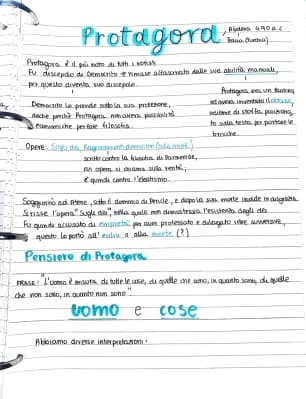 Protagora, Abdera 490 a.C
Protagora è il più noto di tutti i sofisti
Fu discepolo di Democrito e rimase affascinato dalle sue abilità manuali,
per questo diventa suo discepolo.
Protagora era un
ed aveva inventato il
Democrito lo prende sotto la sua protezione,
anche perché Protagora non aveva possibilità
economiche per fare filosofia.
cuscino di stoffa, posizionato
su sulla testa per portare le
brocche.
Opere: Sugli dei, Ragionamenti demolitori (sulla verità)
scritto contro la filosofia di Parmenide,
un'opera si chiama sulla verità;
è quindi contro l'eleatismo.
Soggiornò ad Atene, sotto il dominio di Pericle, e dopo la sua morte cadde in disgrazia
Scrisse l'opera "Sugli dei", nella quale non dimostrava l'esistenza degli dei
Fu quindi accusato di empietà per aver professato e divulgato idee sovversive,
questo lo portò all'esilio e alla morte (?)
Pensiero di Protagora
FRASE: "L'uomo è misura di tutte le cose, di quelle che sono, in quanto sono, di quelle
che non sono, in quanto non sono".
uomo e cose
Abbiamo diverse interpretazioni: